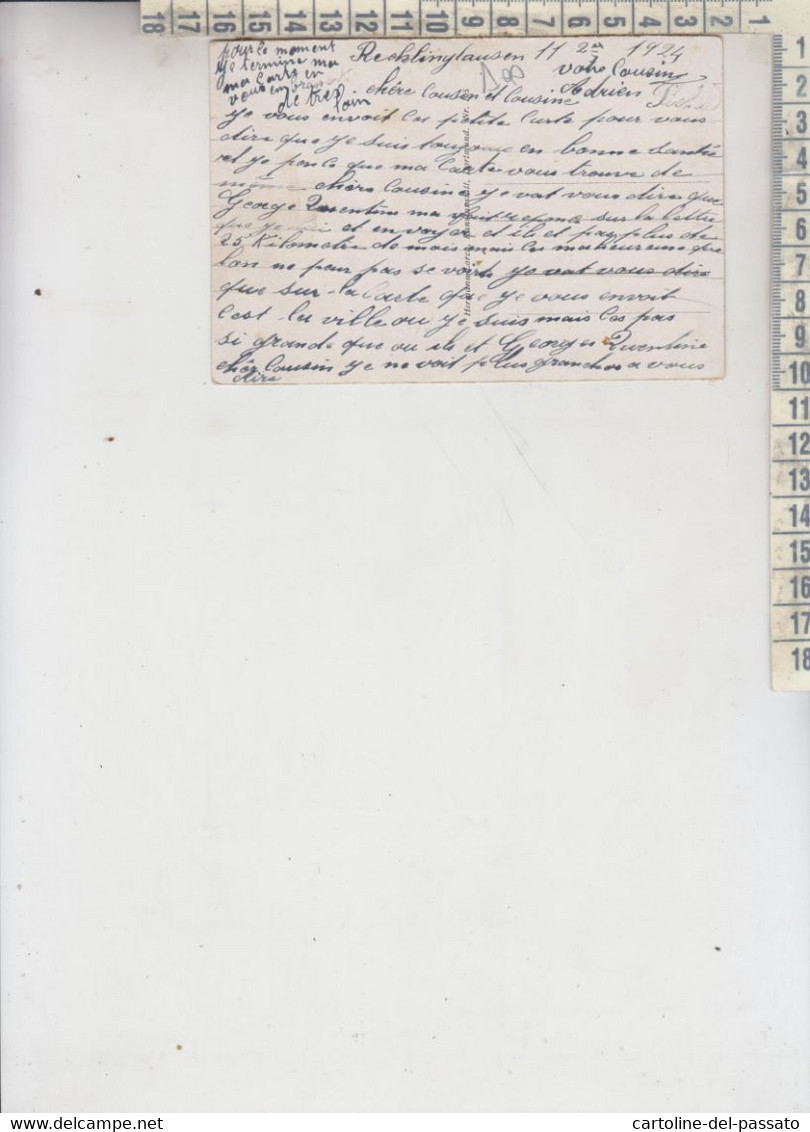 Recklinghausen 11 2 1924
chère Cousin et Cousine
ye vous envoit ces petite Carte pour vous
dire que ye suis toujours en bonne santée
et ye pence que ma Carte vous trouve de
même chère Cousine ye vat vous dire que
George Quentin ma fait reponce sur la lettre
que ye lui et envoyer et il et pas plus de
25 Kilometre de mais mais les malheureuse que
lon ne peur pas se voire ye vat vous dire
que sur la Carte que ye vous envoit
c'est la ville ou ye suis mais les pas
si grande que ou il et Georges Quentine
chèr Cousin ye ne voit plus granchos a vous
dire
pour le moment
ye termine ma
ma Carte en
vous embrasent
de tres
loin
votre Cousin
Adrien
180
cartoline-del-passato
delcampe.net
1 2 3 4 5 6 7 8 9 10 11 12 13 14 15 16 17 18
1 2 3 4 5 6 7 8 9 10 11 12 13 14 15 16 17 18